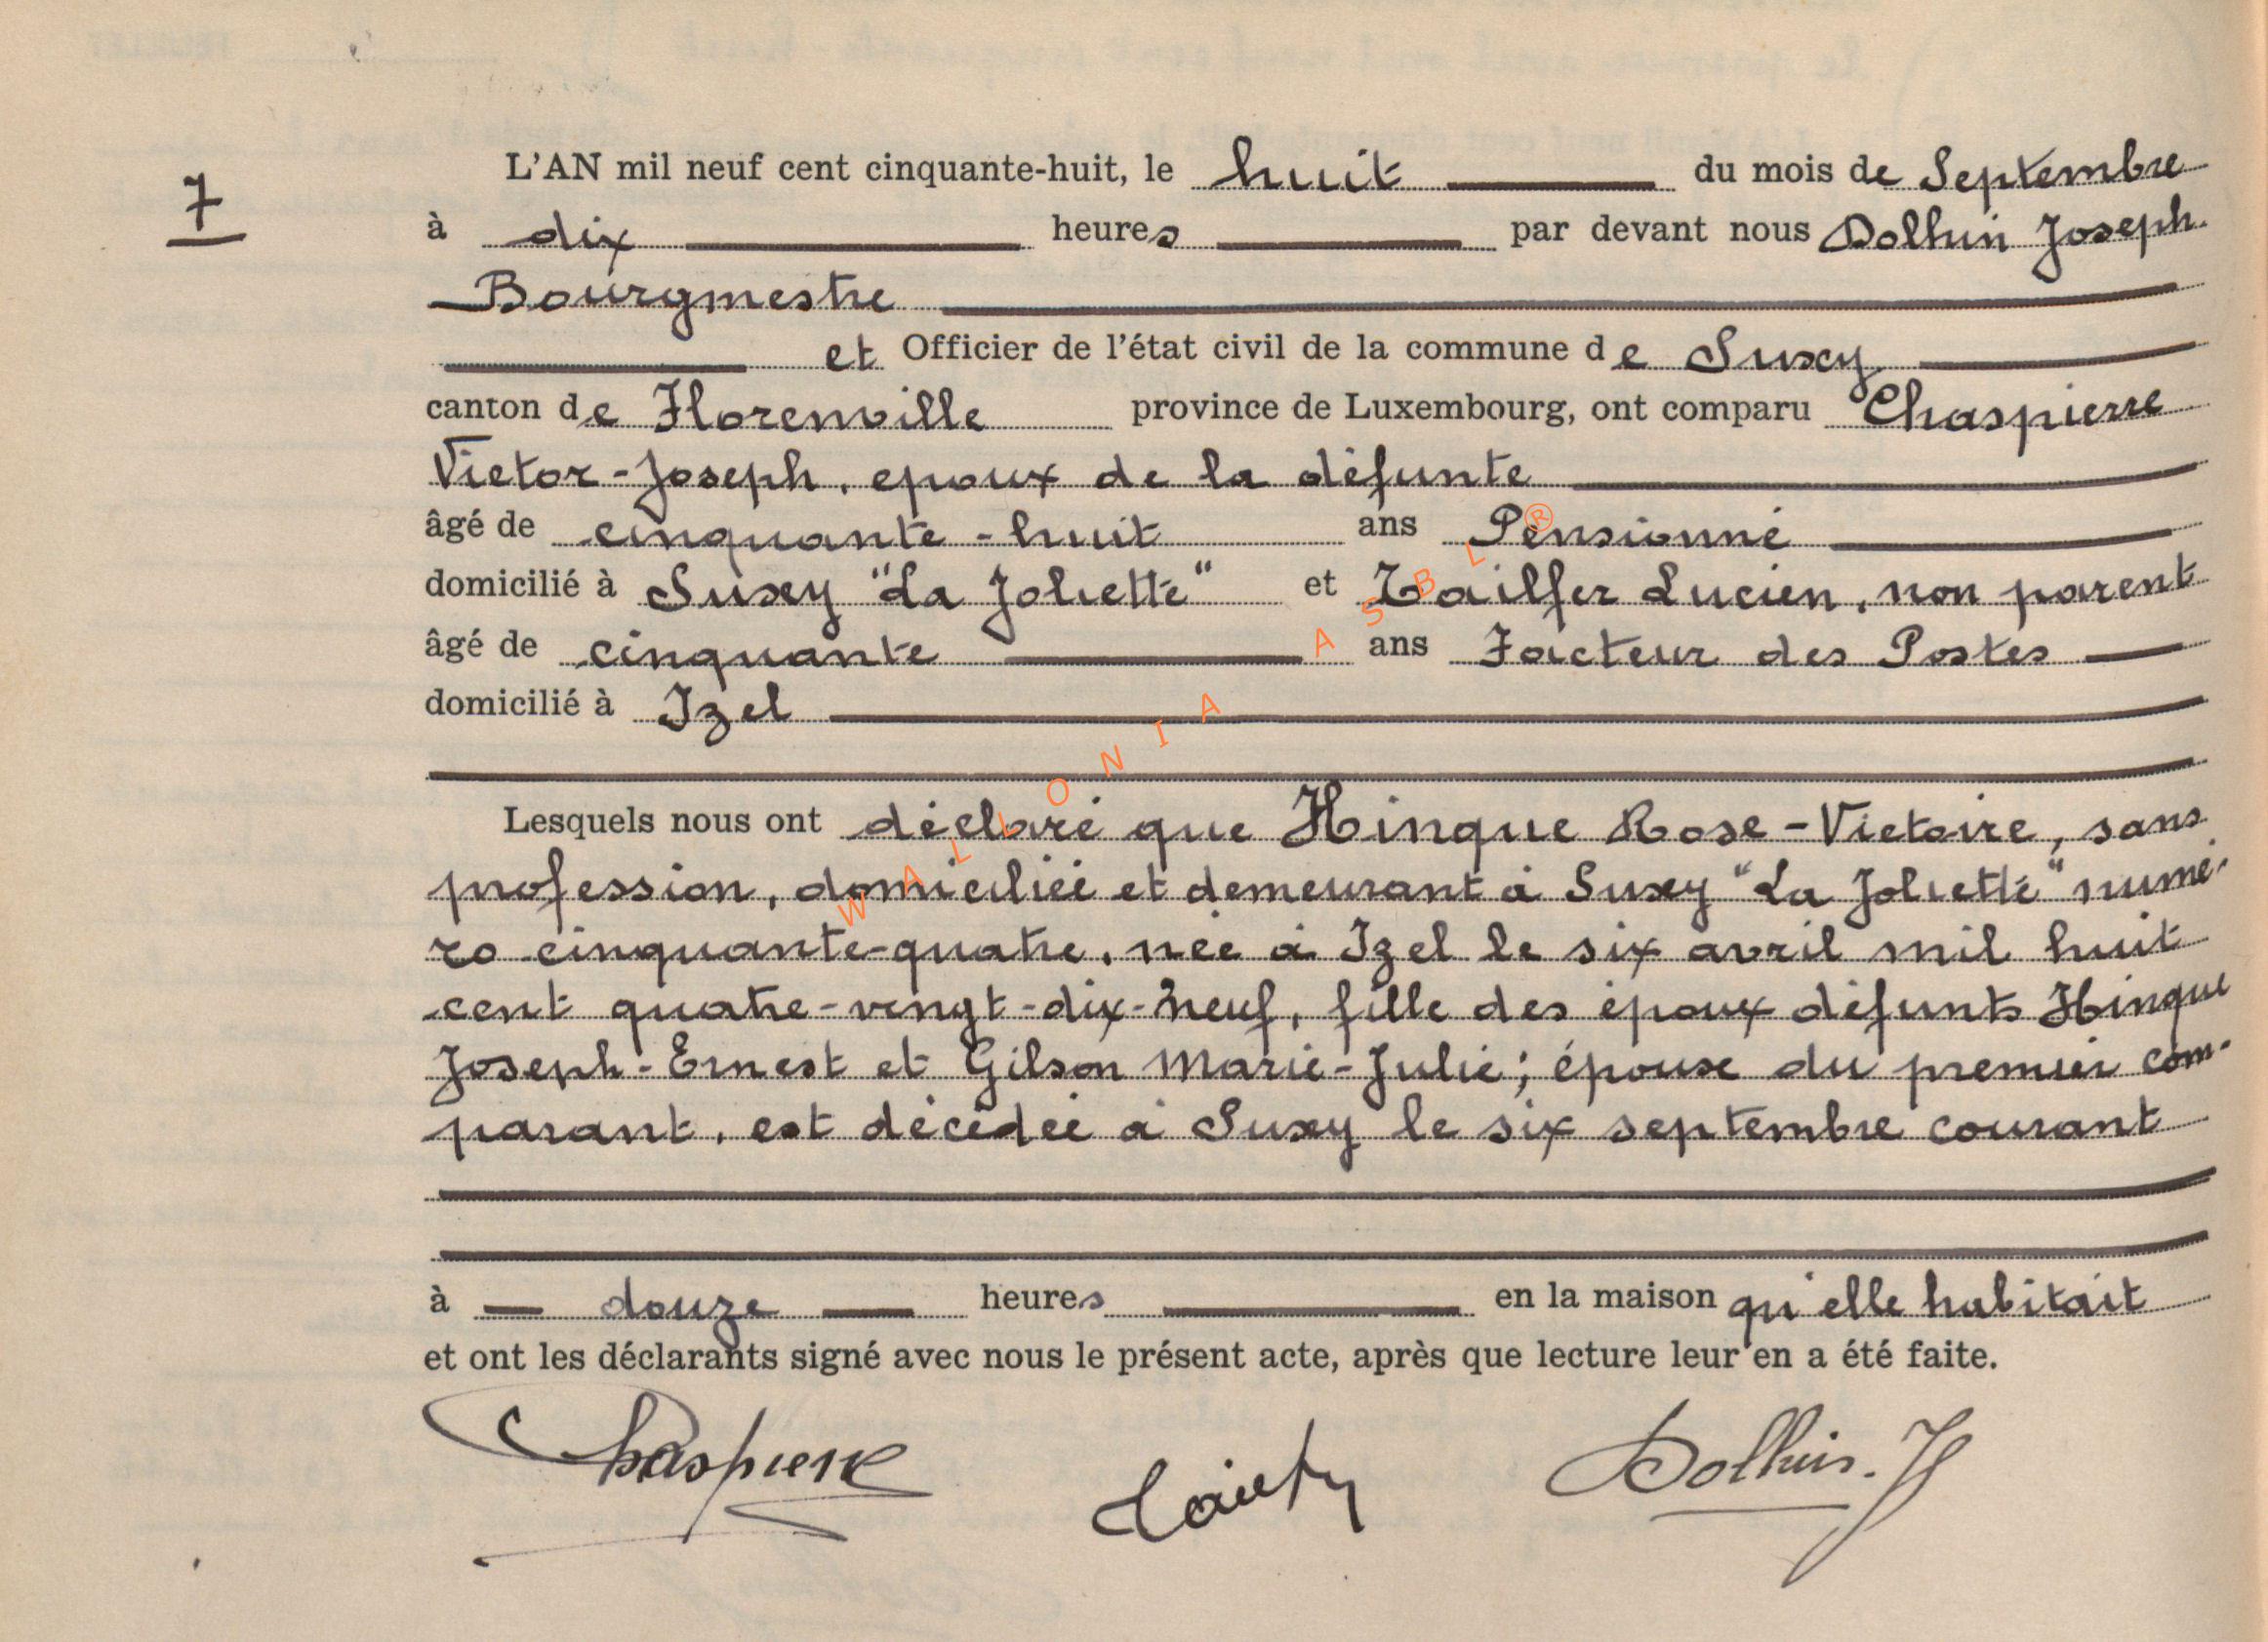 7
L'AN mil neuf cent cinquante-huit, le huit du mois de Septembre
à dix heures par devant nous Dolhin Joseph
Bourgmestre
et Officier de l'état civil de la commune de Suxy
canton de Florenville province de Luxembourg, ont comparu Chaspierre
Victor-Joseph, epoux de la défunte
âgé de cinquante-huit ans Pensionné
domicilié à Suxy "La Joliette" et Tailfer Lucien, non parent
âgé de cinquante ans Facteur des Postes
domicilié à Izel
Lesquels nous ont déclaré que Hinque Rose-Victoire, sans
profession, domiciliée et demeurant à Suxy "La Joliette" numé-
ro cinquante-quatre, née à Izel le six avril mil huit
cent quatre-vingt-dix-neuf, fille des époux défunts Hinque
Joseph-Ernest et Gilson Marie-Julie; épouse du premier com-
parant, est décédée à Suxy le six septembre courant
à douze heures en la maison qu'elle habitait
et ont les déclarants signé avec nous le présent acte, après que lecture leur en a été faite.
Chaspierre Dolhin. J
WALLONIA ASBL ®